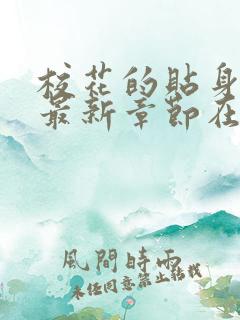 校花的貼身
最新章節在
風間時雨
未经同意禁止转载